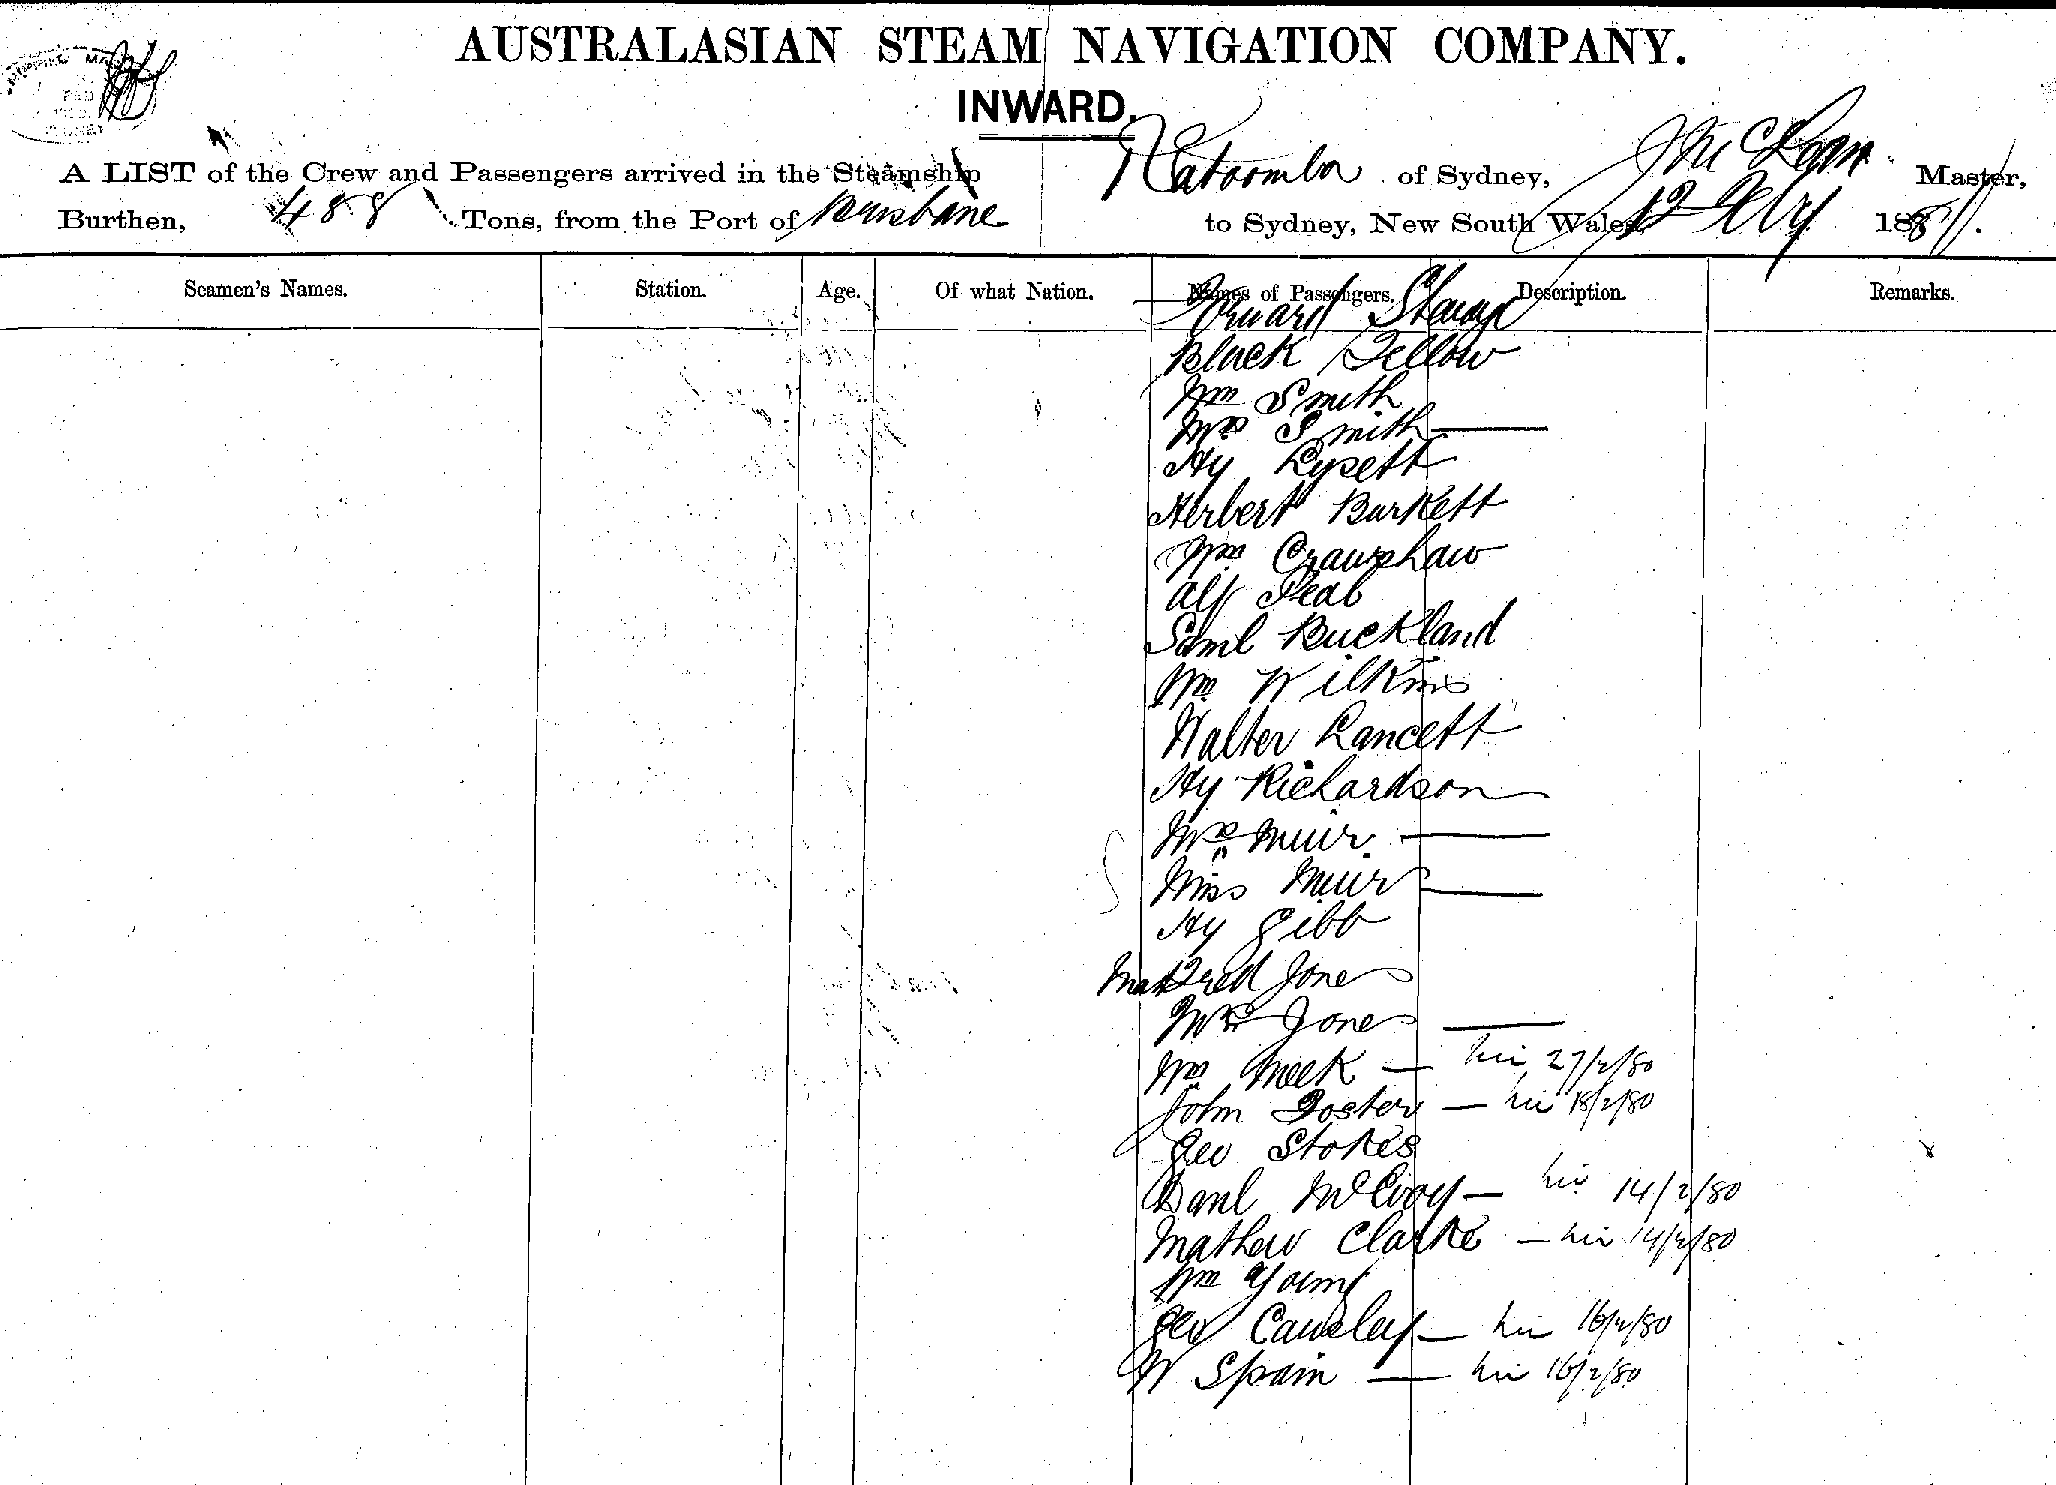 AUSTRALASIAN STEAM NAVIGATION COMPANY.
INWARD.
A LIST of the Crew and Passengers arrived in the Steamship Katoomba of Sydney, J McLean Master,
Burthen, 488 Tons, from the Port of Brisbane to Sydney, New South Wales 12 Feby 1881.
Seamen's Names. Station. Age. Of what Nation. Names of Passengers. Description. Remarks.
Forward
Black Fellow
Wm Smith
Mrs Smith —
Hy Lysett
Herbert Burkett
Wm Crawshaw
Alf
Saml Buckland
Wm Wilkins
Walter Lancett
Hy Richardson
Mrs Muir —
Miss Muir —
Hy Gibb
Fred Jones
Mrs Jones —
Wm Meek — 27/2/80
John Foster — 18/2/80
Geo Stokes
Danl McEvoy — 14/2/80
Mathew Clarke — 14/2/80
Wm Young
Geo Causley — 16/2/80
W Spain — 16/2/80